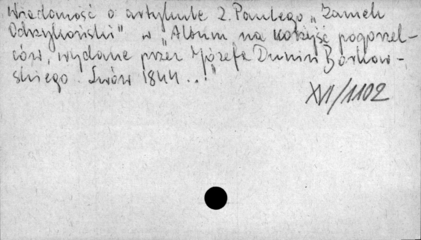 Wiadomość o artykule Z. Paulego „Zamek
Odrzykoński" w „Album na korzyść pogorzel-
ców, wydane przez Józefa Dunin Borkow-
skiego. Lwów 1844..."
XVI/1102